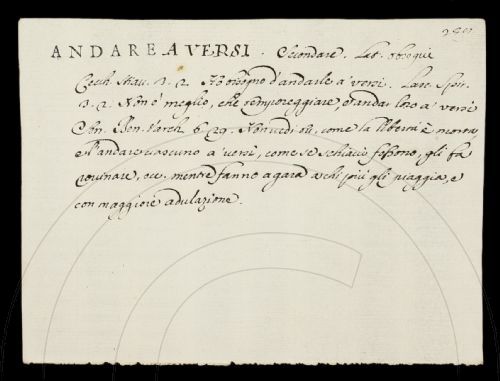 ANDARE A VERSI. Secondare. Lat. obsequi
Cecch. Stiav. 3. 2. d'andarle a' versi. Lasc. Spir.
3. 2. Non è meglio, che temporeggiare, loro a' versi
Bern. 6. 29. Non vedi tu, come la è morta,
e l'andare ciascuno a' versi, come se schiavi fossono, gli fa
rovinare, ecc. mentre fanno a gara a chi più gli piaggia, e
con maggiore adulazione.